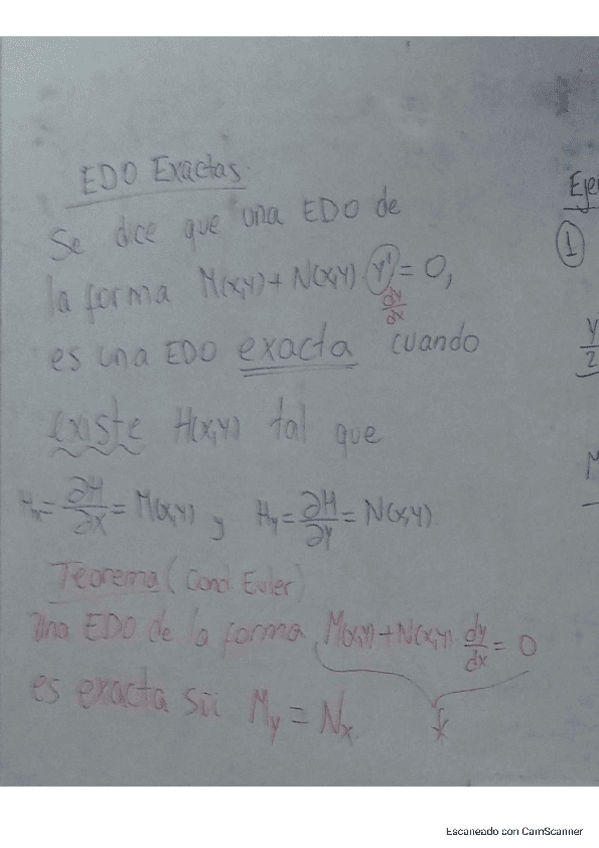 EDO Exactas.
Se dice que una EDO de
la forma M(x,y) + N(x,y) y' = 0,
dy/dx
es una EDO exacta cuando
existe H(x,y) tal que
Hx = ∂H/∂x = M(x,y) y Hy = ∂H/∂y = N(x,y)
Teorema (Cond. Euler)
Una EDO de la forma M(x,y) + N(x,y) · dy/dx = 0
es exacta sii My = Nx.
Eje
1
y/2
M
Escaneado con CamScanner